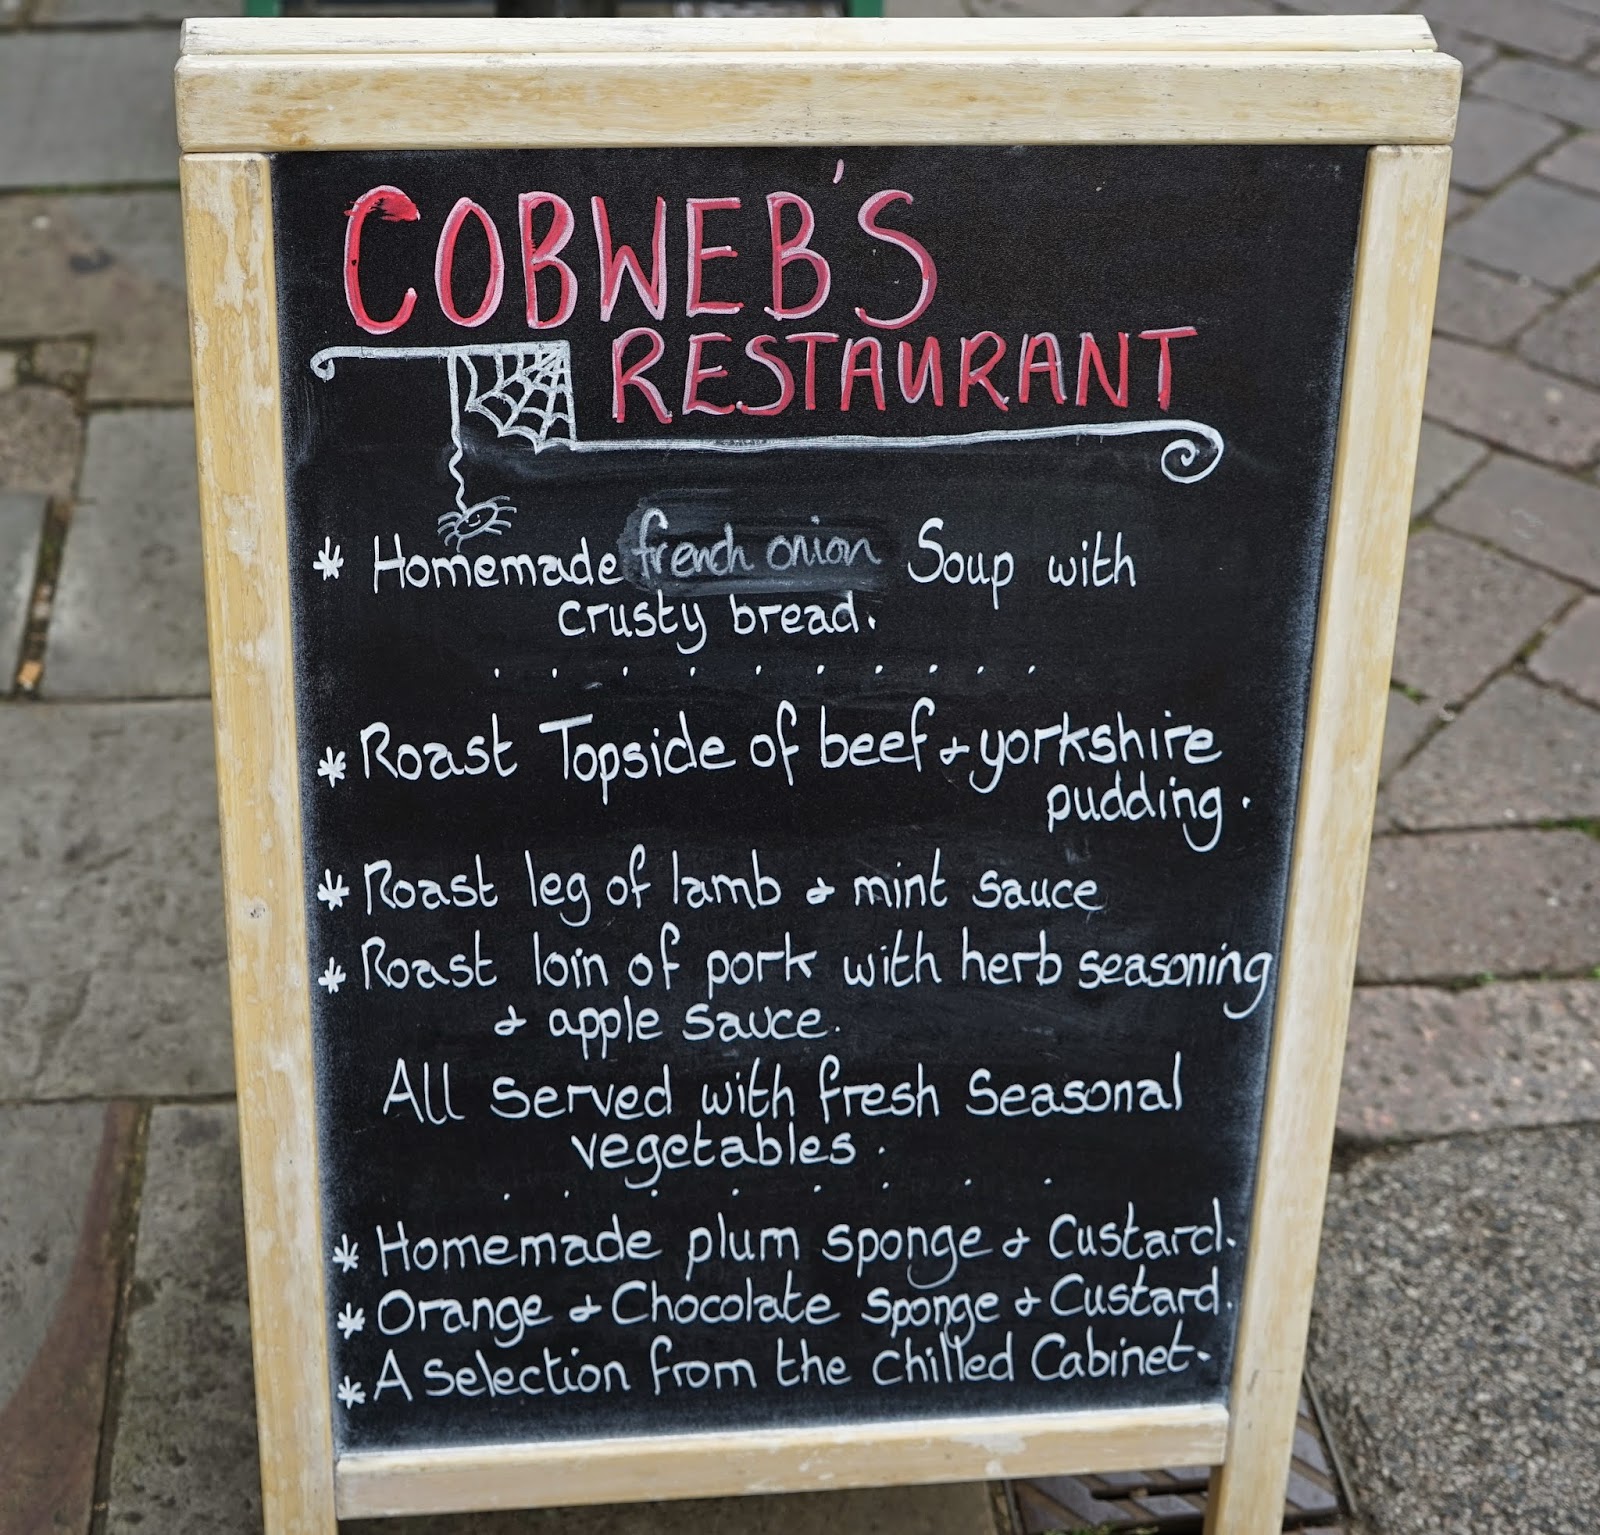 COBWEB'S
RESTAURANT
* Homemade french onion Soup with
crusty bread.
. . . . . . . . .
* Roast Topside of beef & yorkshire
pudding.
* Roast leg of lamb & mint sauce
* Roast loin of pork with herb seasoning
& apple sauce.
All served with fresh seasonal
vegetables.
. . . . . . . .
* Homemade plum sponge & Custard.
* Orange & Chocolate sponge & Custard.
* A selection from the chilled Cabinet.